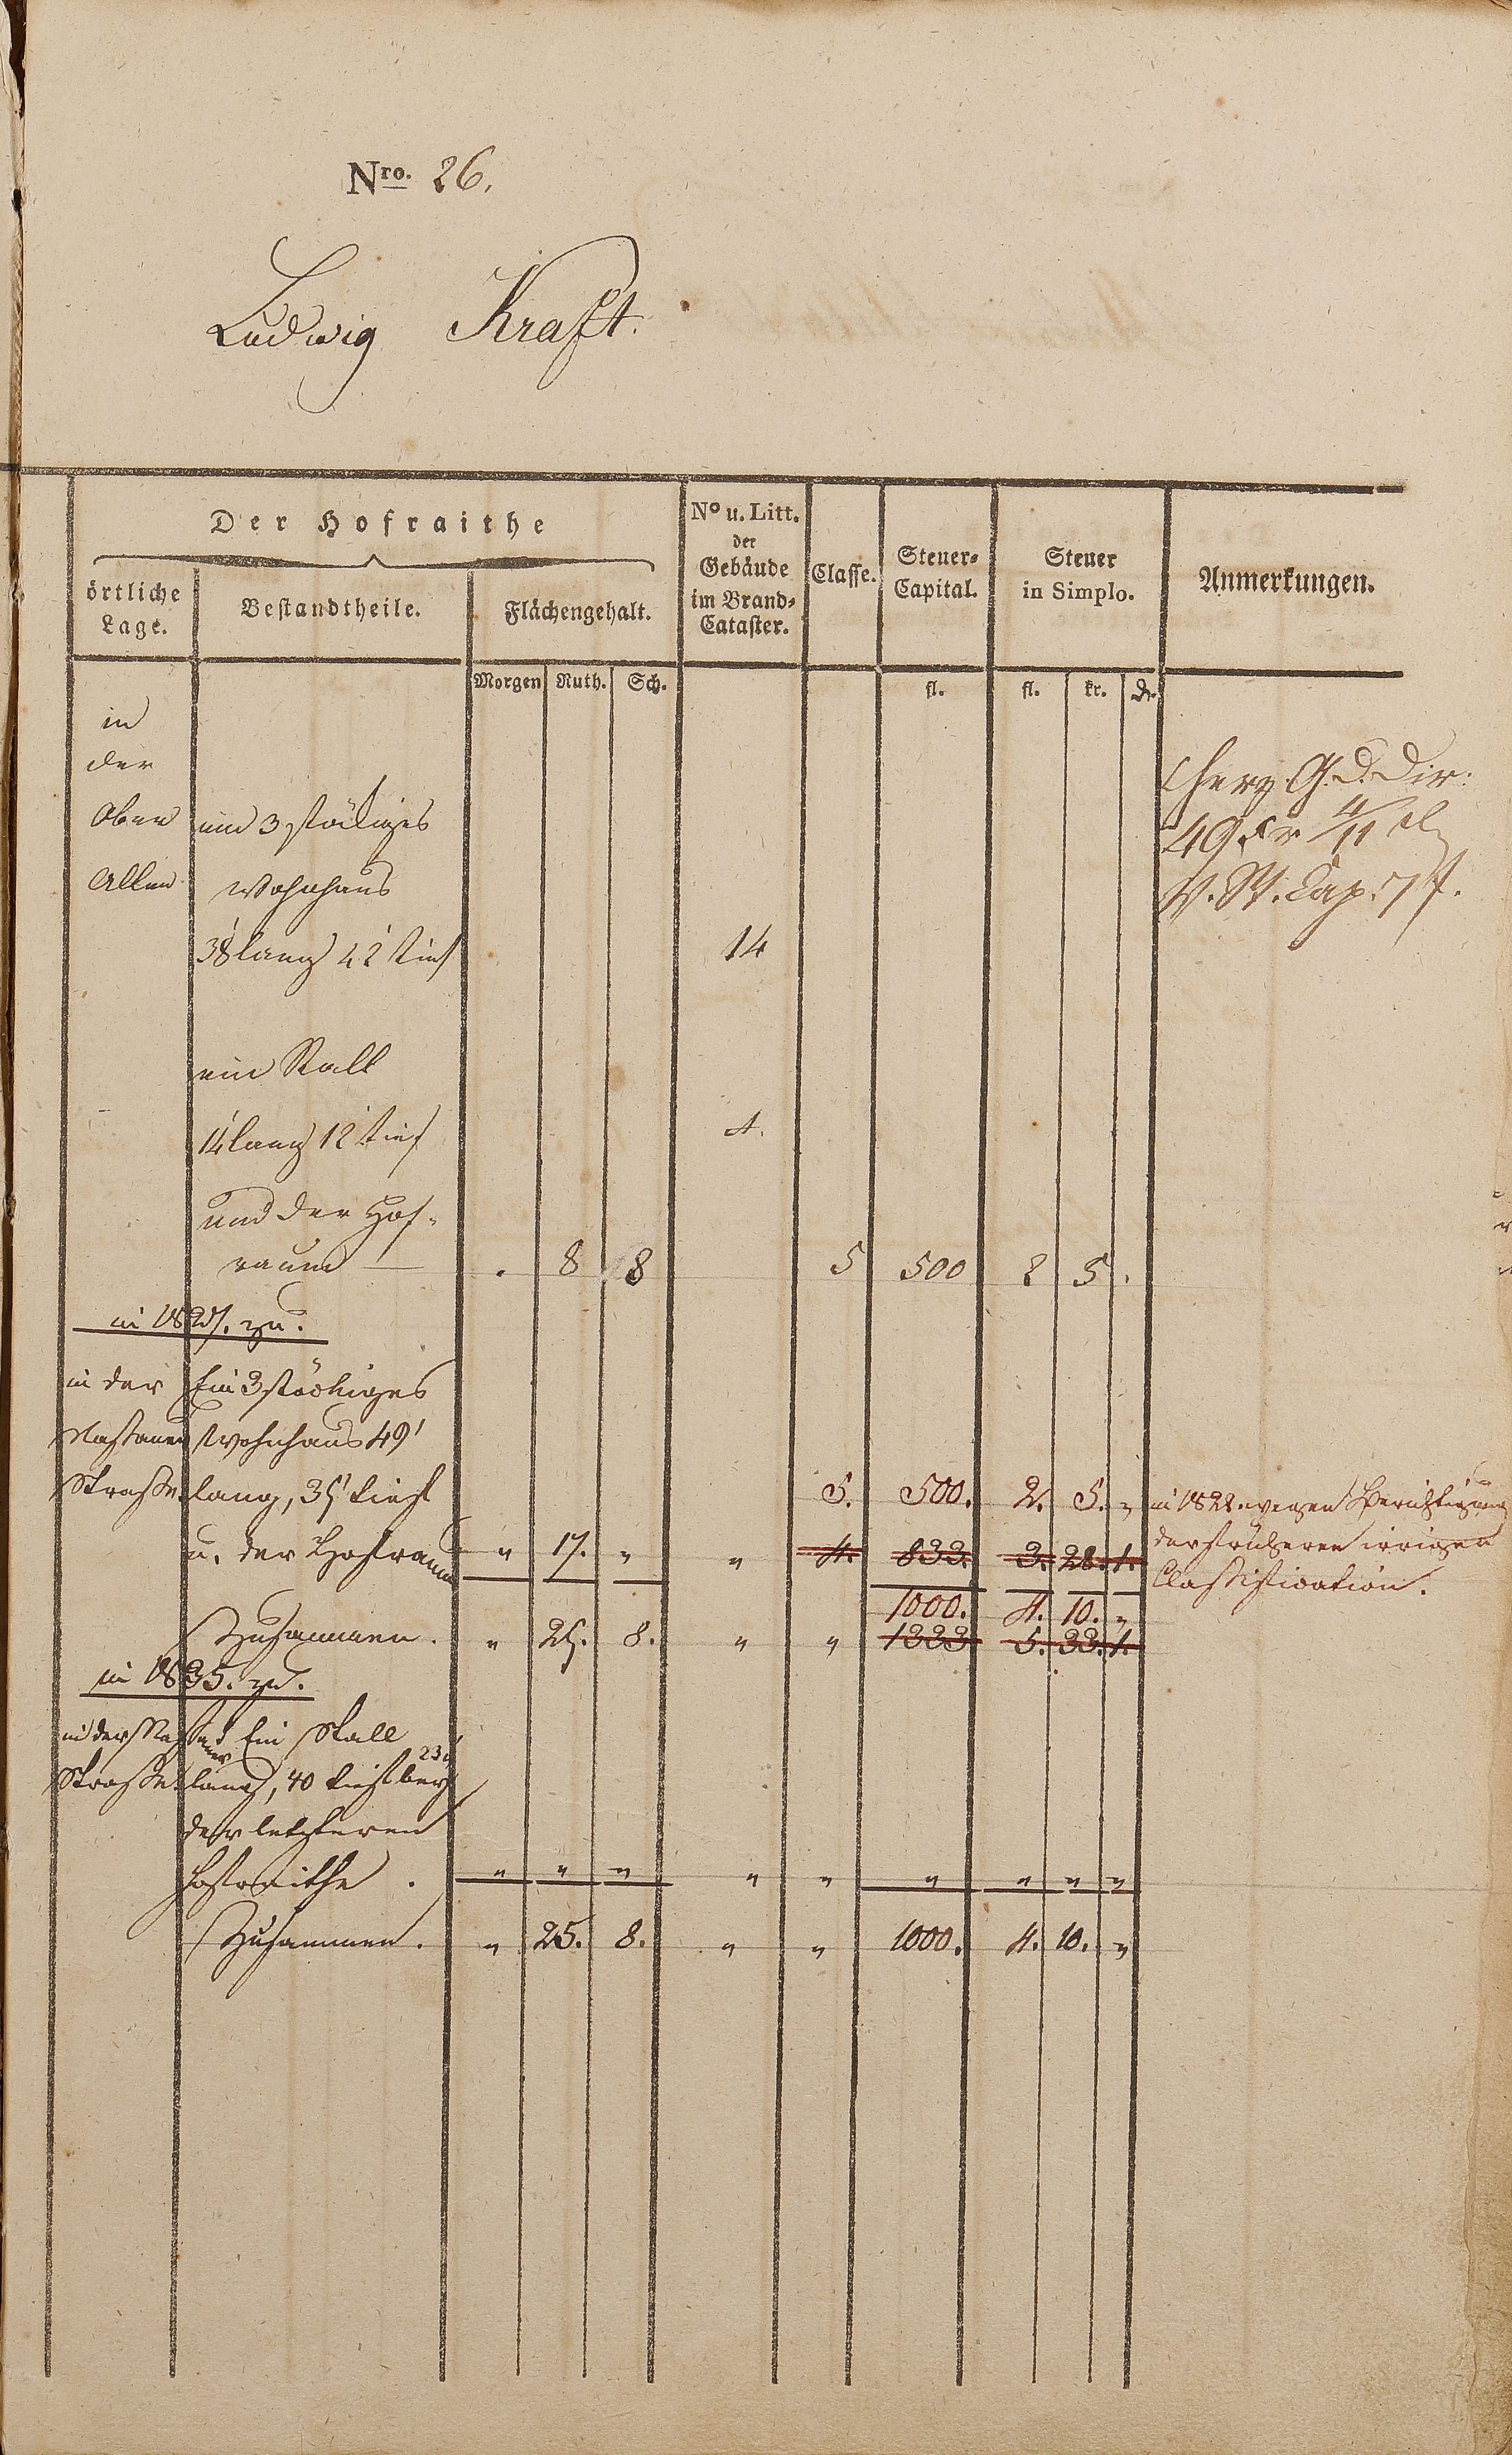 Nro. 26.
Ludwig Kraft.
Der Hofraithe
örtliche Lage.
Bestandtheile.
Flächengehalt.
No u. Litt. der Gebäude im Brand-Cataster.
Classe.
Steuer-Capital.
Steuer in Simplo.
Anmerkungen.
Morgen Ruth. Sch. fl. fl. kr. dr.
in
der
Obern ein 3 stökiges
Allee Wohnhaus
38' lang 42' tief 14
G. d. Dir:
49er 4/11
V. St. Cap. 7 f.
ein Stall
14' lang 12' tief A.
und der Hof-
raum — . 8 8 5 500 2 5 .
in 1827. zu.
in der Ein 3 stöckiges
Nassauer Wohnhaus 49'
Strasse. lang, 35' tief 5. 500. 2. 5. "
u. der Hofraum " 17. " " 4. 833. 3. 28. 1.
in 1828. wegen Berichtigung
der früheren irrigen
Classification.
1000. 4. 10. "
Zusammen. " 25. 8. " " 1333 5. 33. 1.
in 1835. zu.
in der Nassauer Ein Stall 23'
Strasse. lang, 40 tief bey
der letzteren
Hofraithe . " " " " " " " " "
Zusammen. " 25. 8. " " 1000. 4. 10. "